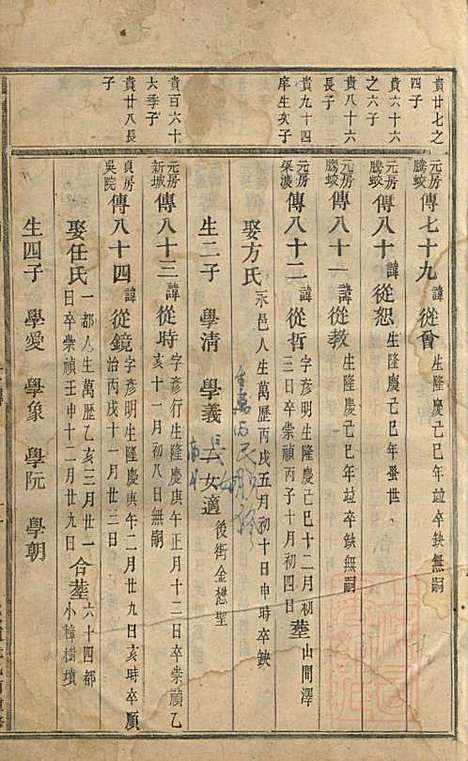 貴廿七之四子
元房騰蛟 傳七十九 諱 從會 生隆慶己巳年竝卒缺無嗣
貴六十六之六子
元房騰蛟 傳八十 諱 從恕 生隆慶己巳年蚤世
貴八十六長子
元房騰蛟 傳八十一 諱 從教 生隆慶己巳年竝卒缺無嗣
貴九十四庠生亥子
元房渠濊 傳八十二 諱 從哲 字彥明生隆慶己巳十二月初三日卒崇禎丙子十月初四日 塟 山間澤
娶方氏 永邑人生萬歷丙戌五月初十日申時卒缺
生二子 學清 學義 一女適 後街金懋聖
貴百六十大季子
元房新城 傳八十三 諱 從時 字彥行生隆慶庚午正月十二日卒崇禎乙亥十一月初八日無嗣
貴廿八長子
貞房吳院 傳八十四 諱 從鏡 字彥明生隆慶庚午二月廿九日亥時卒順治丙戌十一月廿三日
娶任氏 一都人生萬歷乙亥三月廿一日卒崇禎壬申十二月廿九日 合塟 六十四都小樟樹墳
生四子 學愛 學象 學阮 學朝